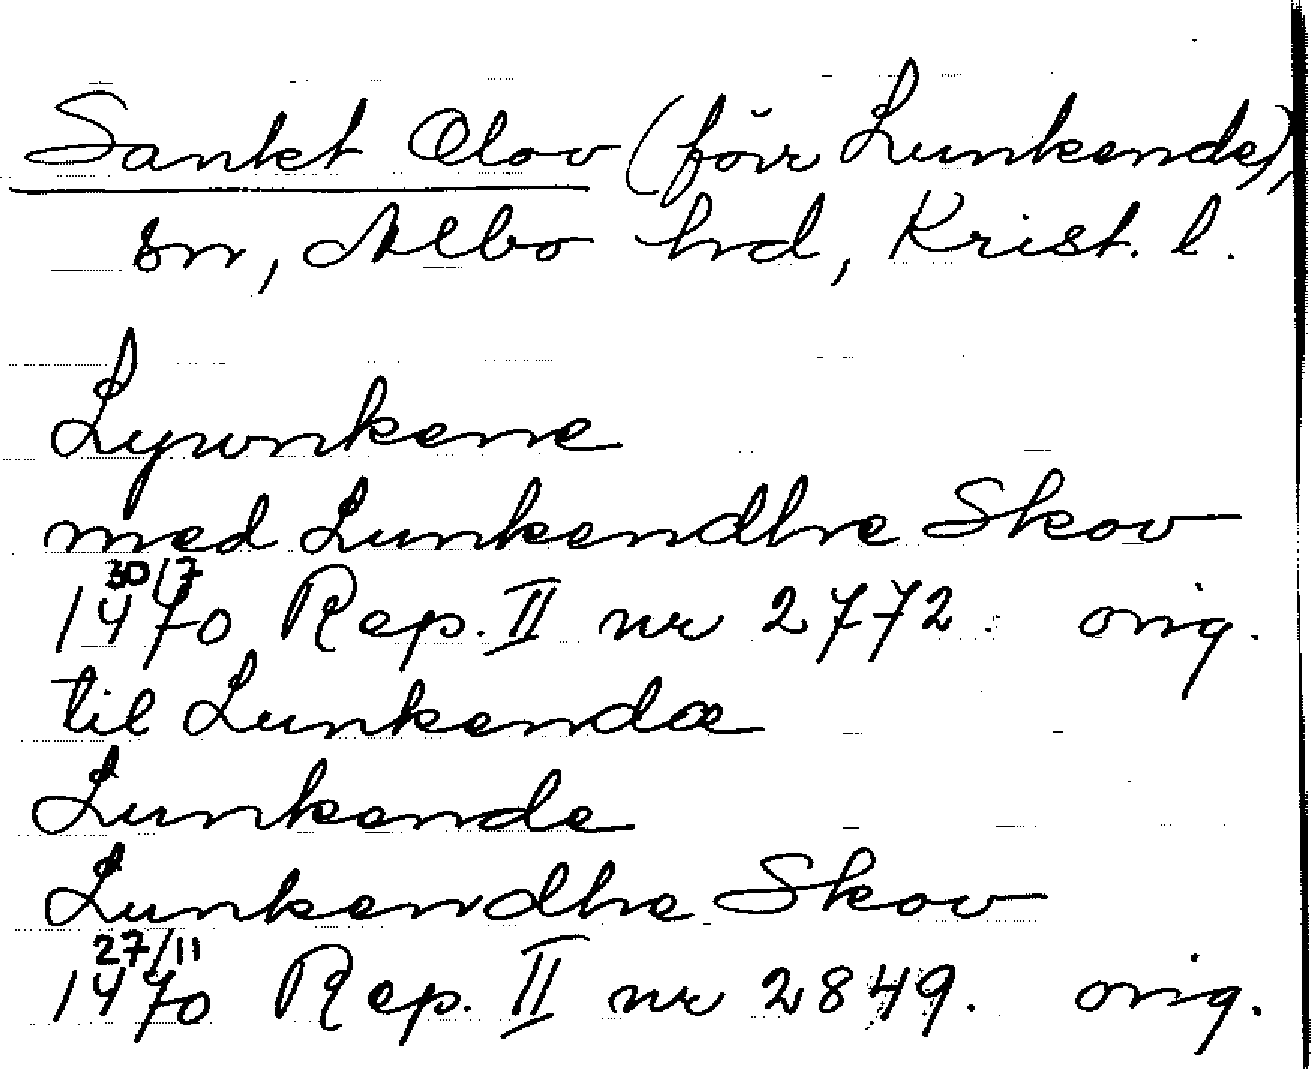 Sankt Olov (förr Lunkende),
sn, Albo hd, Krist. l.
Lywnkene
med Lunkendhe Skov
30/7
1470 Rep. II nr 2772. orig.
til Lunkendæ
Lunkende
Lunkendhe Skov
27/11
1470 Rep. II nr 2849. orig.